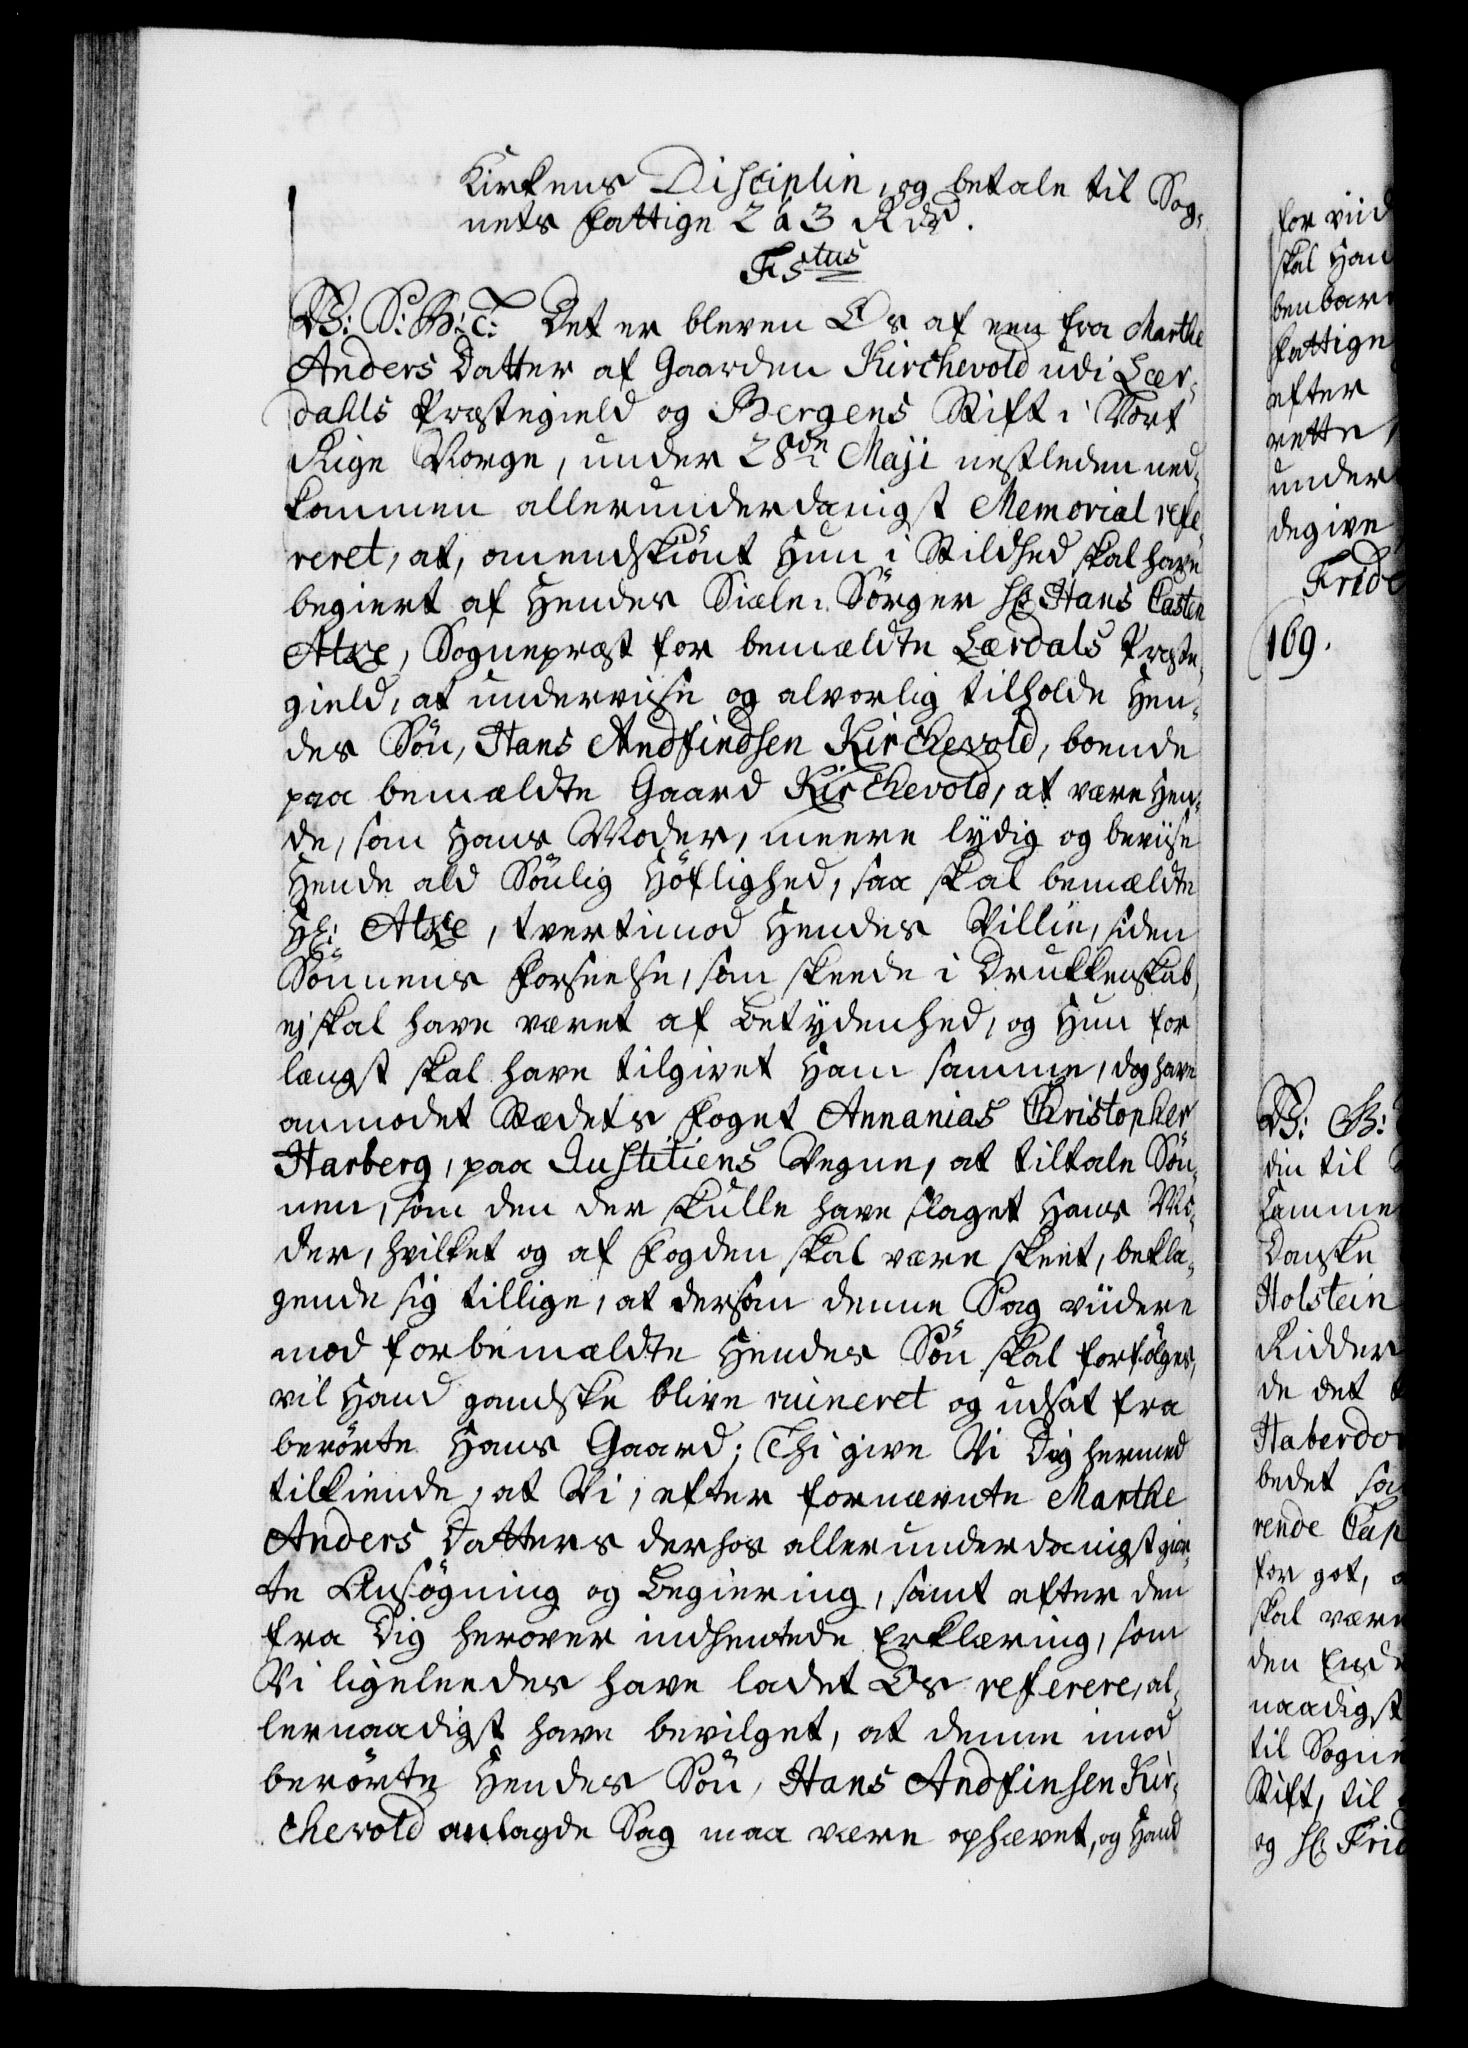 Kirkens Disciplin, og betale til Sog-
nets fattige 2 à 3 Rdr.
F5tus
V: S: B: T: Det er bleven Os af een fra Marthe
Anders Datter af Gaarden Kirchevold udi Lær-
dahls Præstegield og Bergens Stift i Vort
Rige Norge, under 28de Maji nestleden ned-
kommen allerunderdanigst Memorial refe-
reret, at, omendskiønt Hun i Stilhed skal have
begiert af Hendes Siæle-Sørger Hr. Hans Casten
Atke, Sognepræst for bemældte Lærdals Præste-
gield, at undervise og alvorlig tilholde Hen-
des Søn, Hans Andfindsen Kirchevold, boende
paa bemældte Gaard Kirchevold, at være Hen-
de, som Hans Moder, meere lydig og beviise
Hende ald Sønlig Høflighed, saa skal bemældte
Hr: Atke, tvertimod Hendes Villie, siden
Sønnens Forseelse, som skeede i Drukkenskab,
ej skal have været af Betydenhed, og Hun for
længst skal have tilgivet Ham samme, dog have
anmodet Stædets Foget Annanias Christopher
Harberg, paa Justitiens Vegne, at tiltale Søn-
nen, som den der skulle have slaget Hans Mo-
der, hvilket og af Fogden skal være skeet, bekla-
gende sig tillige, at dersom denne Sag viidere
mod forbemældte Hendes Søn skal forfølges,
vil Hand gandske blive ruineret og udsat fra
berørte Hans Gaard; Thi give Vi Dig hermed
tilkiende, at Vi, efter fornævnte Marthe
Anders Datters derhos allerunderdanigst gior-
te Ansøgning og Begiering, samt efter den
fra Dig herover indhentede Erklæring, som
Vi ligeleedes have ladet Os referere, al-
lernaadigst have bevilget, at denne imod
berørte Hendes Søn, Hans Andfinsen Kir-
chevold anlagde Sag maa være ophævet, og Hand
for viid
skal Han
benbar
fattige
efter
rette,
under
degive
Frid
169.
V: G:
din til
Camme
Danske
Holstein
Ridder
de det
Haberdo
bedet sa
rende Cap
for got,
skal være
den Ende
naadigst
til Sogne
Stift, til
og Hr. Frid